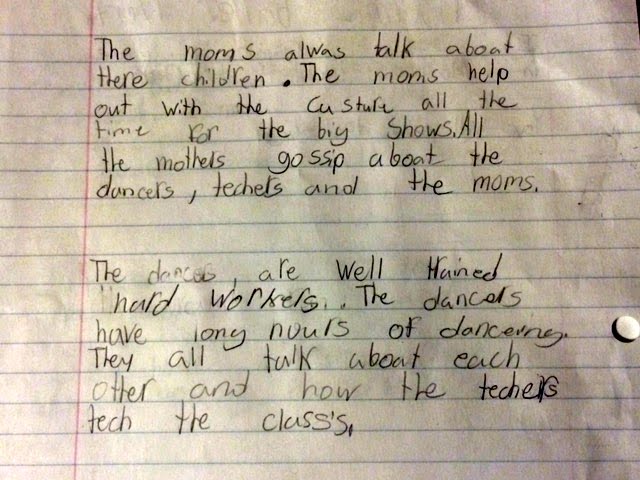 The moms alwas talk aboat
there children. The moms help
out with the custure all the
time for the big Shows. All
the mothers gossip aboat the
dancers, techers and the moms.
The dances, are well trained
hard workers.. The dancers
have long hours of danceing.
They all talk aboat each
otter and how the techers
tech the class's,